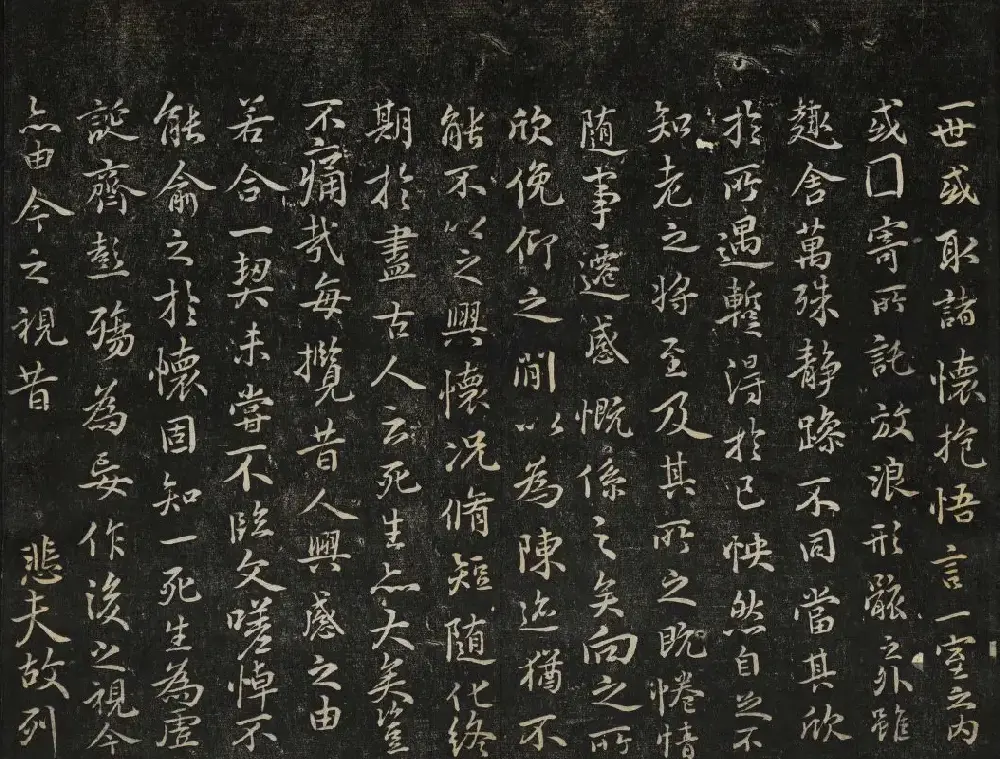 一世或取諸懷抱悟言一室之內
或囗寄所託放浪形骸之外雖
趣舍萬殊静躁不同當其欣
於所遇蹔得於己怏然自足不
知老之將至及其所之既惓情
随事遷感慨係之矣向之所
欣俛仰之閒以為陳迹猶不
能不以之興懷況脩短随化終
期於盡古人云死生亦大矣豈
不痛哉每攬昔人興感之由
若合一契未嘗不臨文嗟悼不
能喻之於懷固知一死生為虛
誕齊彭殤為妄作後之視今
亦由今之視昔 悲夫故列